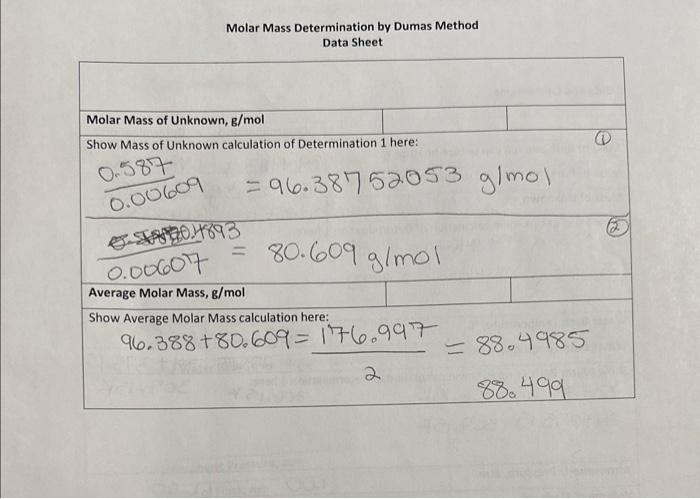 Molar Mass Determination by Dumas Method
Data Sheet
Molar Mass of Unknown, g/mol
Show Mass of Unknown calculation of Determination 1 here:
①
0.587
0.00609
= 96.38752053 g/mol
②
0.4893
0.00607
= 80.609 g/mol
Average Molar Mass, g/mol
Show Average Molar Mass calculation here:
96.388+80.609= 176.997
2
= 88.4985
88.499